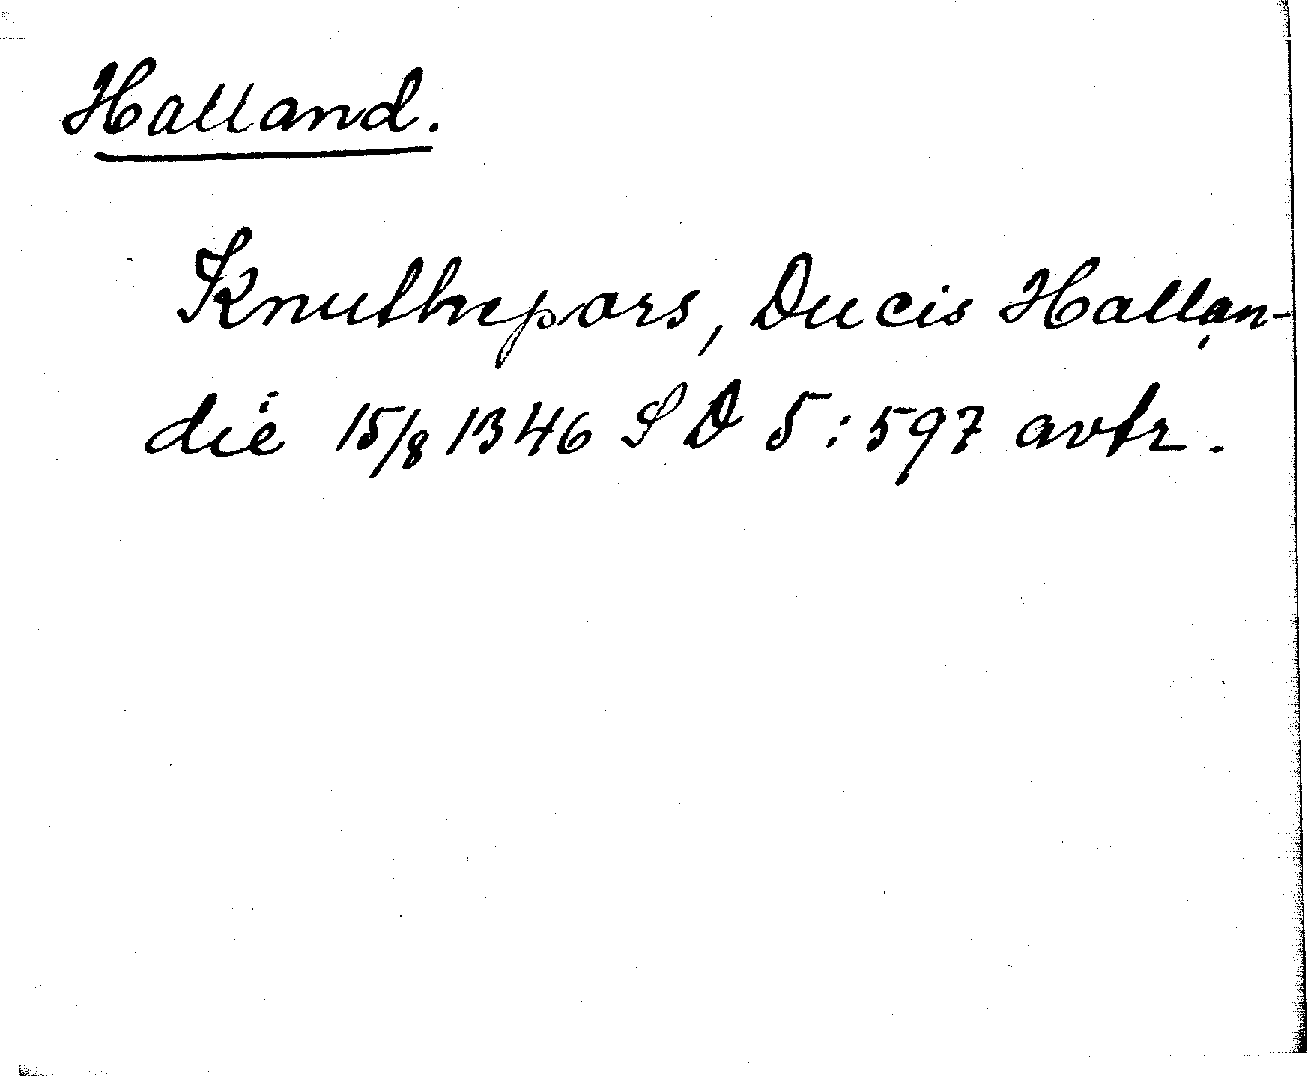 Halland.
Knuthepors, Ducis Hallan-
die 15/8 1346 SD 5:597 avtr.